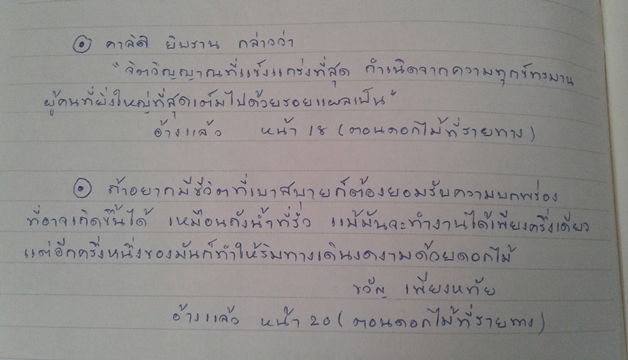 ⊙ คาลิล ยิบราน กล่าวว่า
"จิตวิญญาณที่แข็งแกร่งที่สุด กำเนิดจากความทุกข์ทรมาน
ผู้คนที่ยิ่งใหญ่ที่สุดเต็มไปด้วยรอยแผลเป็น"
อ้างแล้ว หน้า 18 (ตอนดอกไม้ที่รายทาง)
⊙ ถ้าอยากมีชีวิตที่เบาสบายก็ต้องยอมรับความบกพร่อง
ที่อาจเกิดขึ้นได้ เหมือนถังน้ำที่รั่ว แม้มันจะทำงานได้เพียงครึ่งเดียว
แต่อีกครึ่งหนึ่งของมันก็ทำให้ริมทางเดินงดงามด้วยดอกไม้
ขวัญ เพียงหทัย
อ้างแล้ว หน้า 20 (ตอนดอกไม้ที่รายทาง)